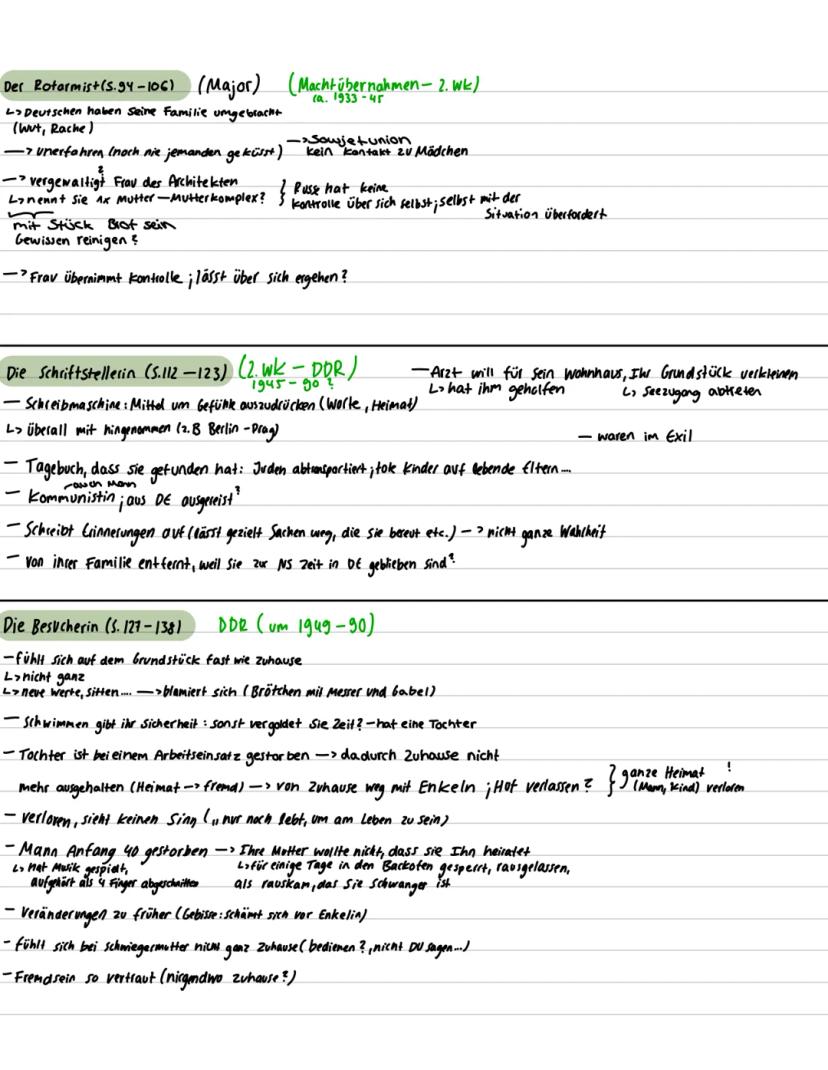 Der Rotarmist (S.94-106) (Major) (Machtübernahmen - 2. WK)
ca. 1933-45
↳ Deutschen haben seine Familie umgebracht
(Wut, Rache)
→ Sowjetunion
→ unerfahren (noch nie jemanden geküsst) kein Kontakt zu Mädchen
→ vergewaltigt? Frau des Architekten
↳ nennt sie 1x Mutter - Mutterkomplex? } Russe hat keine
Kontrolle über sich selbst; selbst mit der
Situation überfordert
mit Stück Brot sein
Gewissen reinigen?
→ Frau übernimmt Kontrolle; lässt über sich ergehen?
Die Schriftstellerin (S.112-123) (2. WK - DDR)
1945-90?
- Arzt will für sein Wohnhaus, Ihr Grundstück verkleinen
↳ hat ihm geholfen ↳ Seezugang abtreten
- Schreibmaschine: Mittel um Gefühle auszudrücken (Worte, Heimat)
↳ überall mit hingenommen (z.B Berlin-Prag)
- waren im Exil
- Tagebuch, dass sie gefunden hat: Juden abtransportiert; Kinder auf lebende Eltern...
auch Mann
- Kommunistin; aus DE ausgereist?
- Schreibt Erinnerungen auf (lässt gezielt Sachen weg, die sie bereut etc.) → nicht ganze Wahrheit
- Von ihrer Familie entfernt, weil Sie zur NS Zeit in DE geblieben sind?
Die Besucherin (S. 127-138) DDR (um 1949-90)
- fühlt sich auf dem Grundstück fast wie zuhause
↳ nicht ganz
↳ neue Werte, Sitten.... → blamiert sich (Brötchen mit Messer und Gabel)
- Schwimmen gibt ihr Sicherheit: sonst vergoldet sie Zeit? - hat eine Tochter
- Tochter ist bei einem Arbeitseinsatz gestorben → dadurch Zuhause nicht
mehr ausgehalten (Heimat → fremd) → von Zuhause weg mit Enkeln; Hof verlassen? } ganze Heimat !
(Mann, Kind) verloren
- verloren, sieht keinen Sinn („nur noch lebt, um am Leben zu sein)
- Mann Anfang 40 gestorben → Ihre Mutter wollte nicht, dass sie Ihn heiratet
↳ hat Musik gespielt, ↳ für einige Tage in den Backofen gesperrt, rausgelassen,
aufgehört als 4 Finger abgeschnitten als rauskam, das Sie Schwanger ist
- Veränderungen zu früher (Gebiss: schämt sich vor Enkelin)
- fühlt sich bei Schwiegermutter nicht ganz Zuhause (bedienen?, nicht DU sagen...)
- Fremdsein so vertraut (nirgendwo zuhause?)